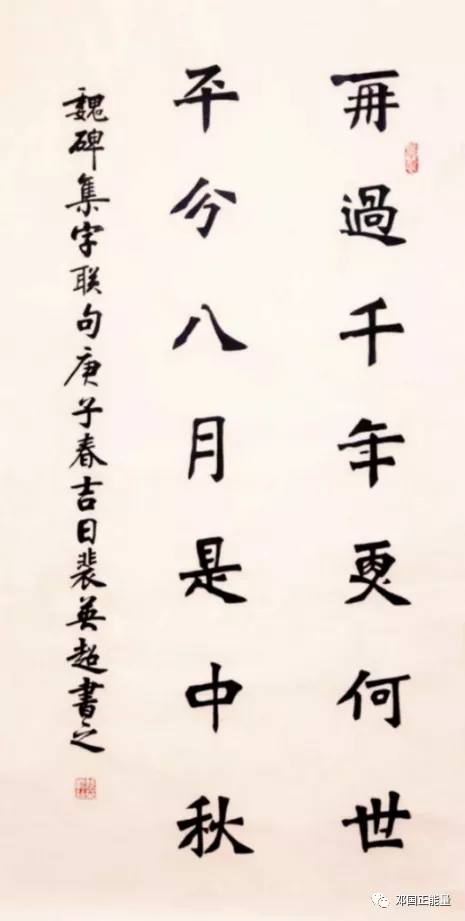 再過千年更何世
平分八月是中秋
魏碑集字联句庚子春吉日裴英超書之
邓国正能量